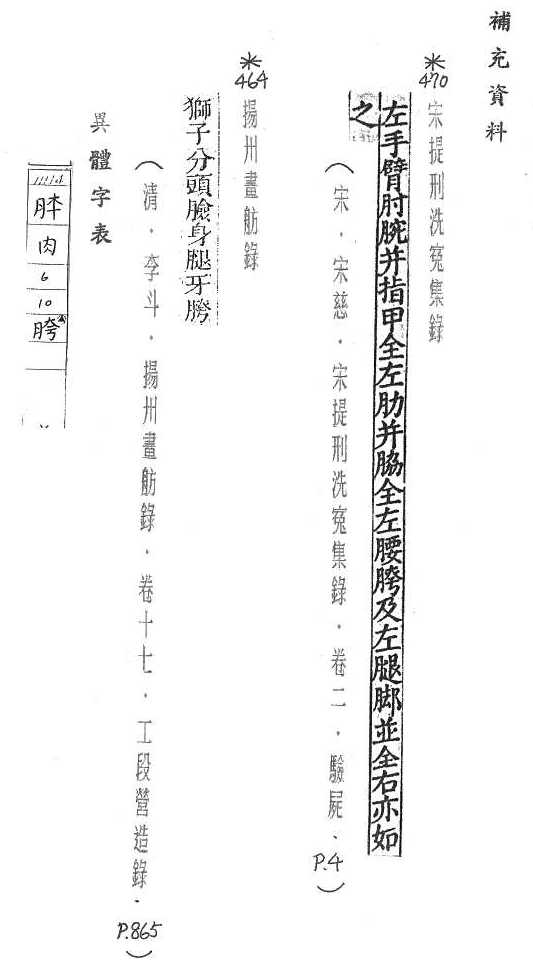 補充資料
*470
宋提刑洗冤集錄
左手臂肘腕并指甲全左肋并脇全左腰胯及左腿脚並全右亦如
之
（宋．宋慈．宋提刑洗冤集錄．卷二．驗屍、P.4）
*464
揚州畫舫錄
獅子分頭臉身腿牙胯
（清．李斗．揚州畫舫錄．卷十七．工段營造錄．P.865）
異體字表
肉
6
10
胯